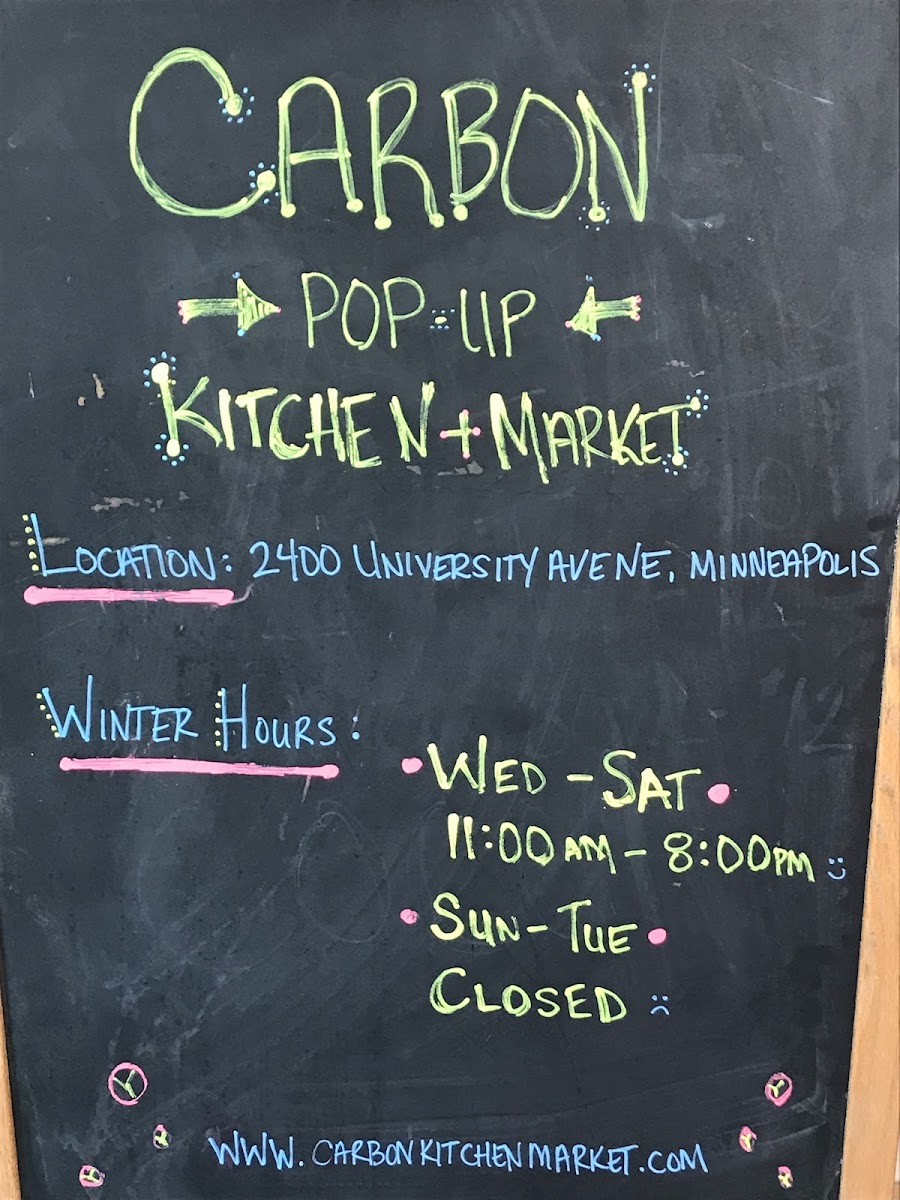 CARBON
POP-UP
KITCHEN + MARKET
LOCATION: 2400 UNIVERSITY AVENE, MINNEAPOLIS
WINTER HOURS:
WED - SAT
11:00AM - 8:00PM
SUN - TUE
CLOSED
WWW.CARBONKITCHENMARKET.COM